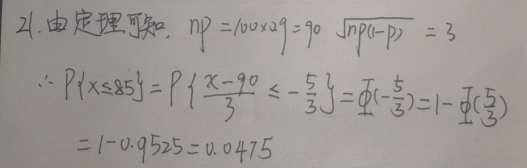 21.由定理可知, np=100×0.9=90 √np(1-p) =3
∴ P{x≤85}=P{(x-90)/3 ≤ -5/3}=Φ(-5/3)=1-Φ(5/3)
=1-0.9525=0.0475